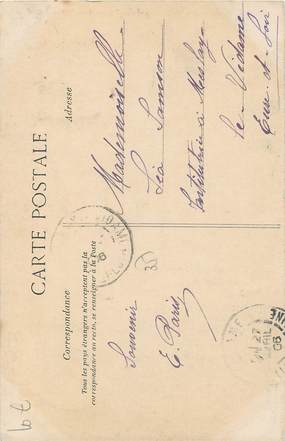 CARTE POSTALE
Correspondance
Tous les pays étrangers n'acceptent pas la
correspondance au recto, se renseigner à la Poste
Adresse
Souvenir
E. Paris
Mademoiselle
Léa Samson
Institutrice à Meulay
le-Vidame
Eure-et-Loir
27
06
lot